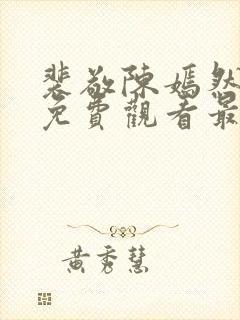 裴敬陳嫣然
免費觀看最
黃秀慧